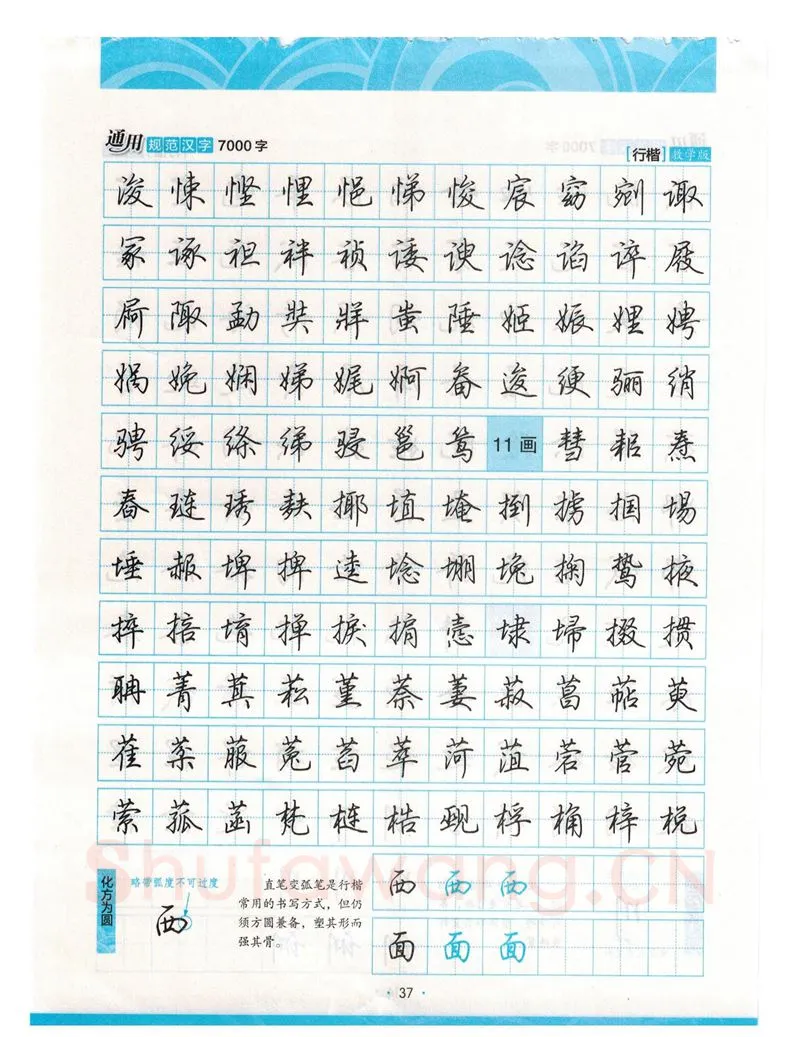 通用 规范汉字 7000 字
[行楷] 教学版
浚 悚 悭 悝 悒 悌 悛 宸 窈 剜 诹
冢 诼 袒 袢 祯 诿 谀 谂 谄 谇 屐
屙 陬 勐 奘 牂 蚩 陲 姬 娠 娌 娉
娲 娩 娴 娣 娓 婀 畚 逡 绠 骊 绡
骋 绥 绦 绨 骎 邕 鸶 11 画 彗 耜 焘
舂 琏 琇 麸 揶 埴 埯 捯 掳 掴 埸
埵 赧 埤 捭 逵 埝 堋 堍 掬 鸷 掖
捽 掊 堉 掸 捩 掮 悫 埭 埽 掇 掼
聃 菁 萁 菘 堇 萘 萋 菽 菖 萜 萸
萑 棻 菔 菟 萏 萃 菏 菹 菪 菅 菀
萦 菰 菡 梵 梿 梏 觋 桴 桷 梓 棁
化方为圆
略带弧度不可过度
西
直笔变弧笔是行楷
常用的书写方式，但仍
须方圆兼备，塑其形而
强其骨。
西 西 西
面 面 面
Shufawang.CN
· 37 ·